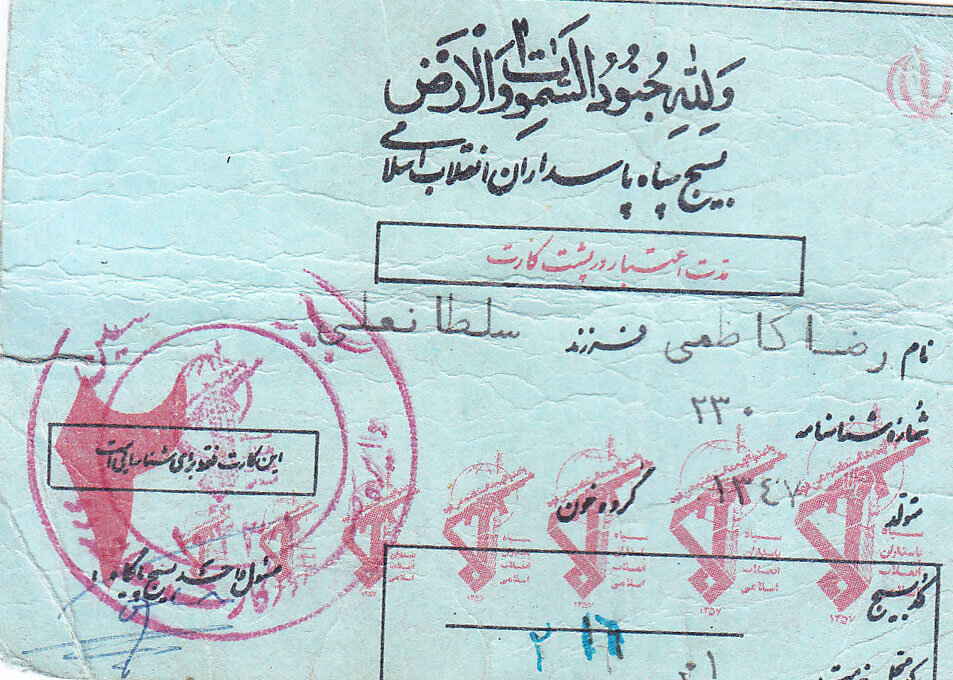 وَلِلّٰهِ جُنُودُ السَّمٰوٰاتِ وَالْاَرْضِ
بسیج سپاه پاسداران انقلاب اسلامی
مدت اعتبار در پشت کارت
نام رضا کاظمی فرزند سلطانعلی
شماره شناسنامه ۲۳۰
متولد ۱۳٤۷ گروه خون
این کارت فقط برای شناسایی است
مسئول واحد بسیج پایگاه
سپاه پاسداران انقلاب اسلامی
۱۳۵۷
کد بسیج
۲ ۱۶